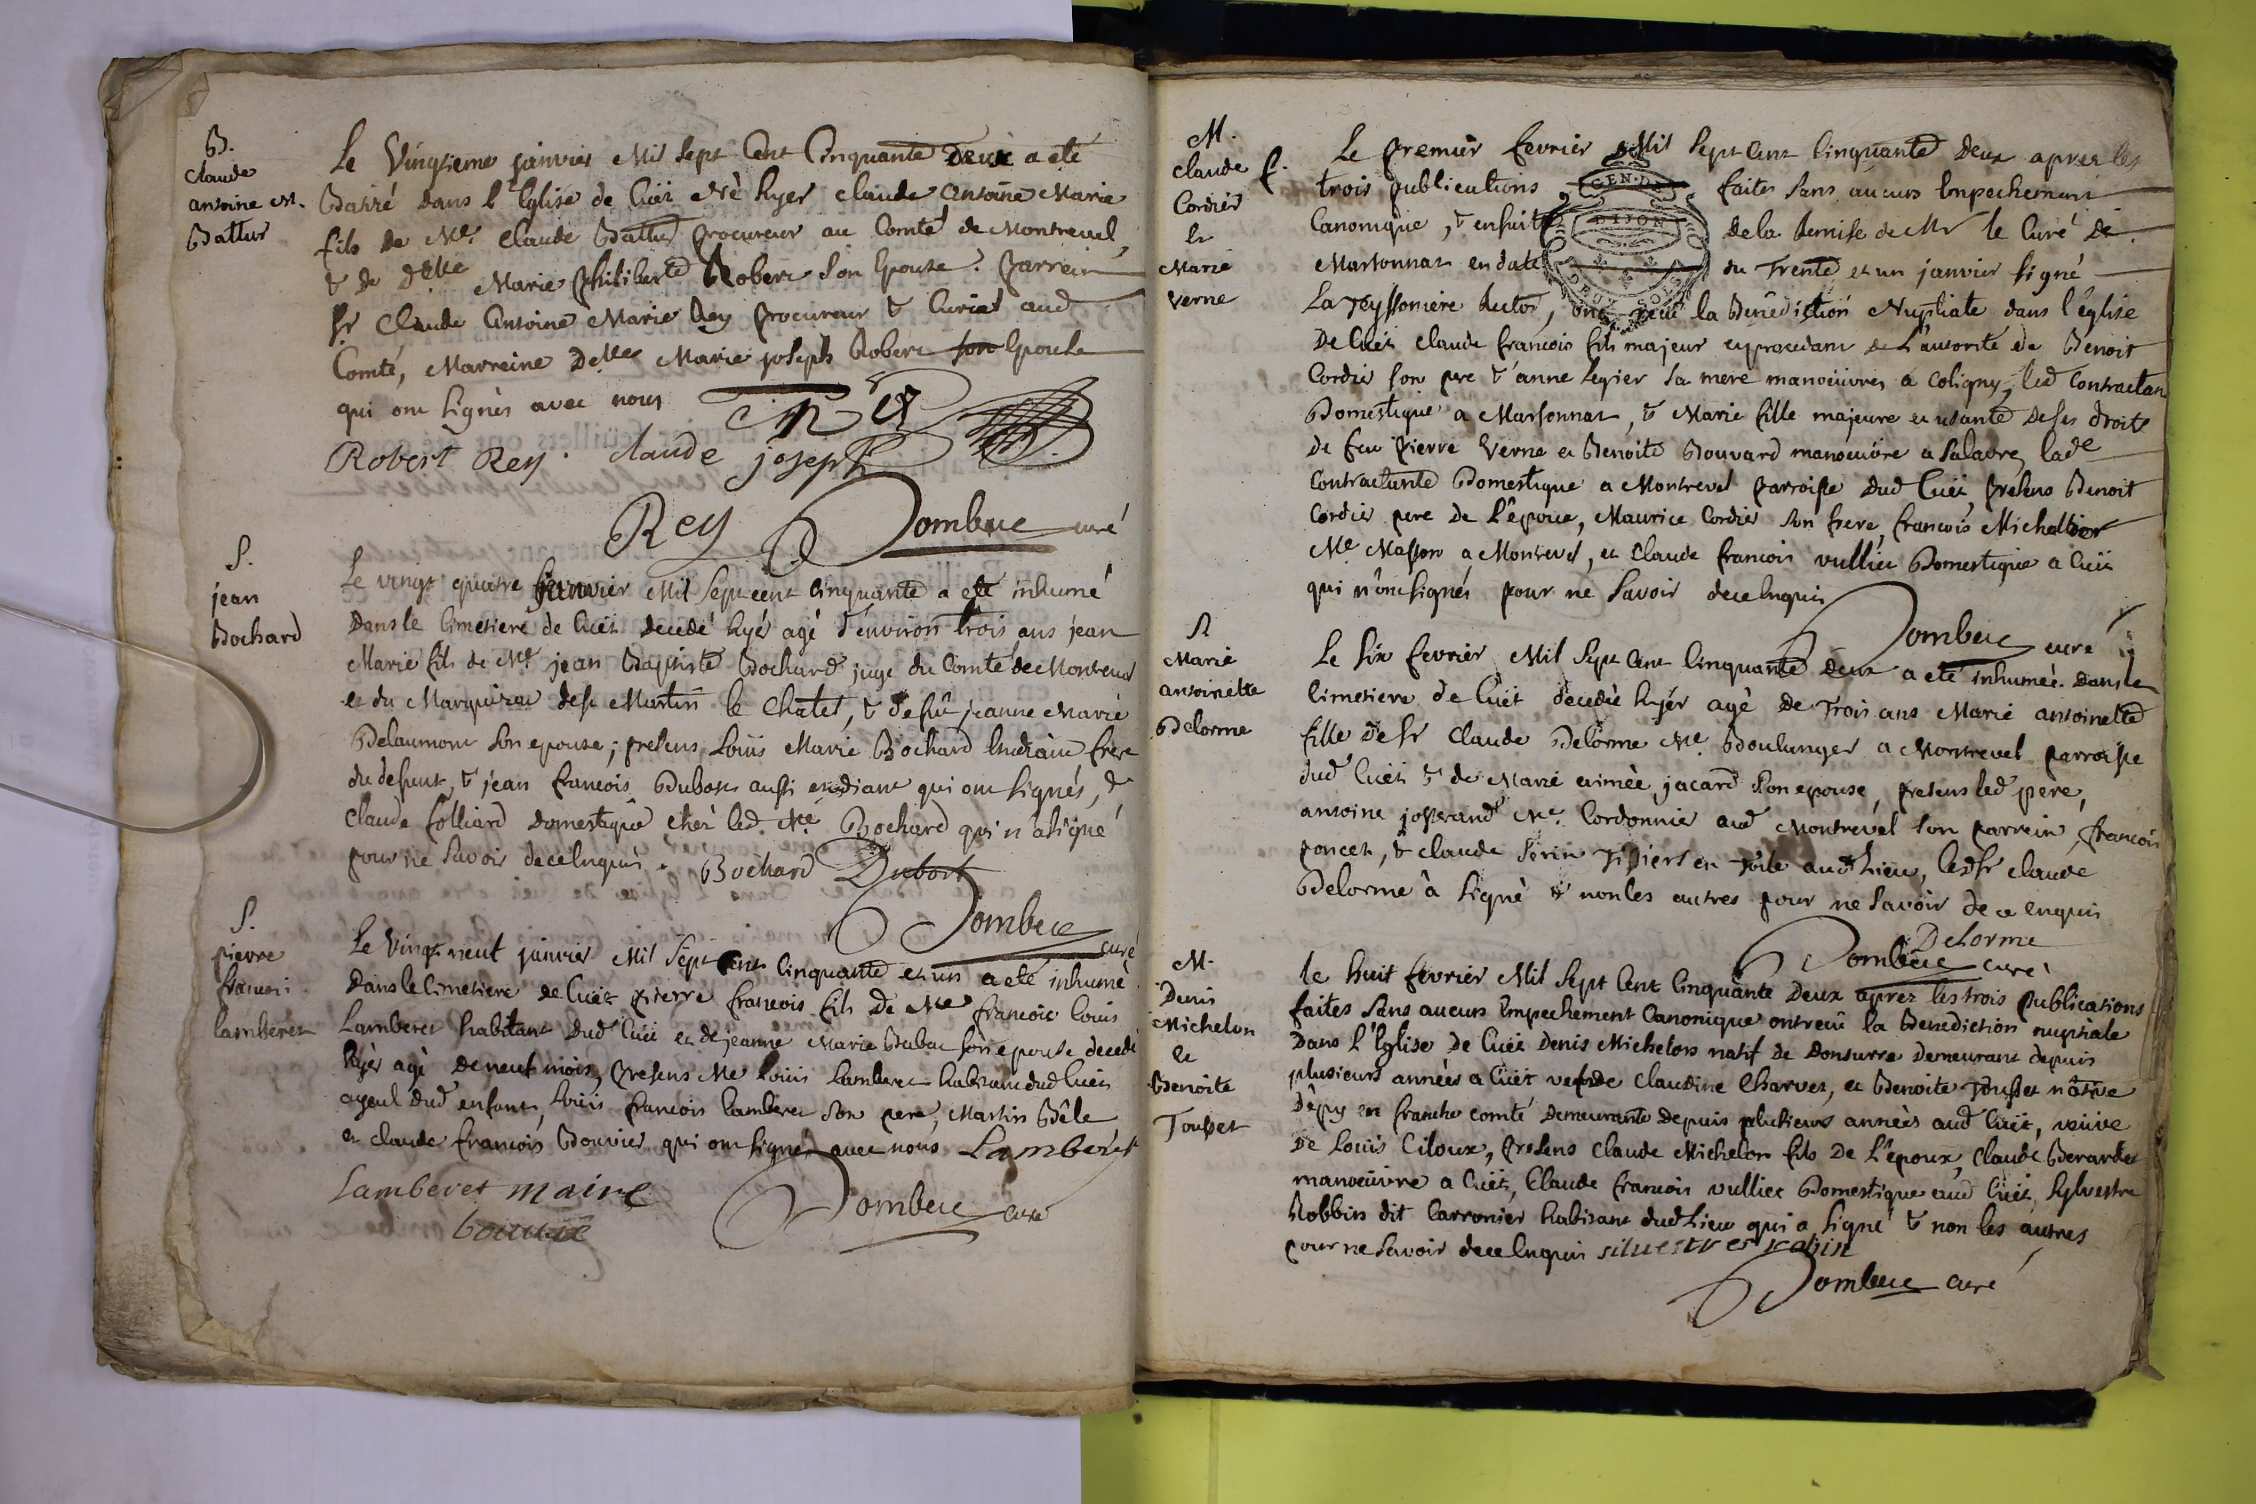 B.
claude
antoine M.
Battur
Le Vingtieme janvier Mil Sept Cent Cinquante Deux a eté
Batisé dans l'Eglise de Cuët né hyer Claude Antoine Marie
fils de Me. Claude Battur procureur au Comté de Montrevel,
& de delle Marie Philiberte Robert son Epouse. parrein
Sr Claude Antoine Marie Rey procureur & Curial aud
Comté, Marreine Delle Marie joseph Robert son Epouse
qui ont signés avec nous
Robert Rey. claude joseph
Rey Dombeuc curé
S.
jean
Bochard
Le vingt quatre janvier Mil Sept cent cinquante a eté inhumé
Dans le Cimetiere de Cuët decedé hyér agé d'environ trois ans jean
Marie fils de Me. jean Baptiste Bochard juge du Comté de Montrevel
et du Marquizat de St Martin le Chatel, & defüe jeanne Marie
Delaumont son epouse; presens Loüis Marie Bochard Etudiant frere
du defunt, & jean francois Dubost aussi etudiant qui ont signés, &
Claude folliard domestique chéz led. Me. Bochard qui n'a signé
pour ne savoir de ce Enquis. Bochard Dubost
Dombeuc curé
S.
pierre
francois
lamberet
Le Vingt neuf janvier Mil Sept Cent Cinquante et un a eté inhumé
Dans le Cimetiere de Cuët pierre francois fils de Me francois louis
Lamberet habitant dud Cuët et de jeanne Marie Dubac son epouse decedé
hyér agé de neuf mois, presens Me Loüis Lamberet habitant dud Cuët
ayeul dud enfant, Loüis francois lamberet son pere, Martin Bêle
et claude francois Bouvier qui ont signés avec nous Lamberet
Lamberet maire
bouvié Dombeuc curé
M.
claude
Cordier
&
Marie
Verne
f.
Le premier fevrier Mil Sept Cent Cinquante Deux apres les
trois publications faites sans aucun Empechement
Canonique, & ensuite de la Remise de Mr le Curé de
Marsonnaz en date du Trente et un janvier signé
La Teyssoniere Recto, ont reçû la Benediction Nuptiale dans l'église
De Cuët claude francois fils majeur et procedant de L'autorité de Benoit
Cordier son pre & anne Legier sa mere manoeuvres a Coligny, led Contractant
Domestique a Marsonnaz, & Marie fille majeure et usante de ses droits
de feu pierre Verne et Benoite Bouvard manoeuvre a Salavre, lade
Contractante Domestique a Montrevel parroisse dud Cuët presens Benoit
Cordier pere de L'epoux, Maurice Cordier son frere, francois Michellier
Me Masson a Montrevel, et Claude francois vulliet Domestique a Cuët
qui n'ont signés pour ne Savoir de ce Enquis
Dombeuc curé
S.
Marie
antoinette
Delorme
Le six fevrier Mil Sept Cent Cinquante Deux a eté inhumée. Dans le
Cimetiere de Cuët decedée hyér agé De Trois ans Marie antoinette
fille de Sr Claude Delorme Me. Boulanger a Montrevel parroisse
dud Cuët & de Marie aimée jacard son epouse, presens led pere,
antoine josserand Me. Cordonnier aud Montrevel son parrein, francois
poncet, & claude Serin Tissiers en Toile aud Lieu, led Sr claude
Delorme à Signé & non les autres pour ne savoir de ce enquis
Delorme
Dombeuc curé
M.
Denis
Michelon
&
Benoite
Tousset
le huit fevrier Mil Sept Cent Cinquante Deux aprez les trois publications
faites sans aucun Empechement Canonique ont reçû la Benediction nuptiale
Dans l'Eglise de Cuët Denis Michelon natif de Donsurre demeurant depuis
plusieurs années a Cuët vefde Claudine Charvet, et Benoite Tousset native
D'epy en franche comté demeurante depuis plusieurs années aud Cuët, veüve
De Loüis Ciloux, presens Claude Michelon fils De L'époux, Claude Berardet
manoeüvre a Cuët, Claude francois vulliet Domestique aud Cuët, Sylvestre
Robbin dit Carronier habitant dud Lieu qui a signé & non les autres
pour ne savoir de ce Enquis siluestres robin
Dombeuc curé
GEN. DE
DIJON
DEUX SOLS